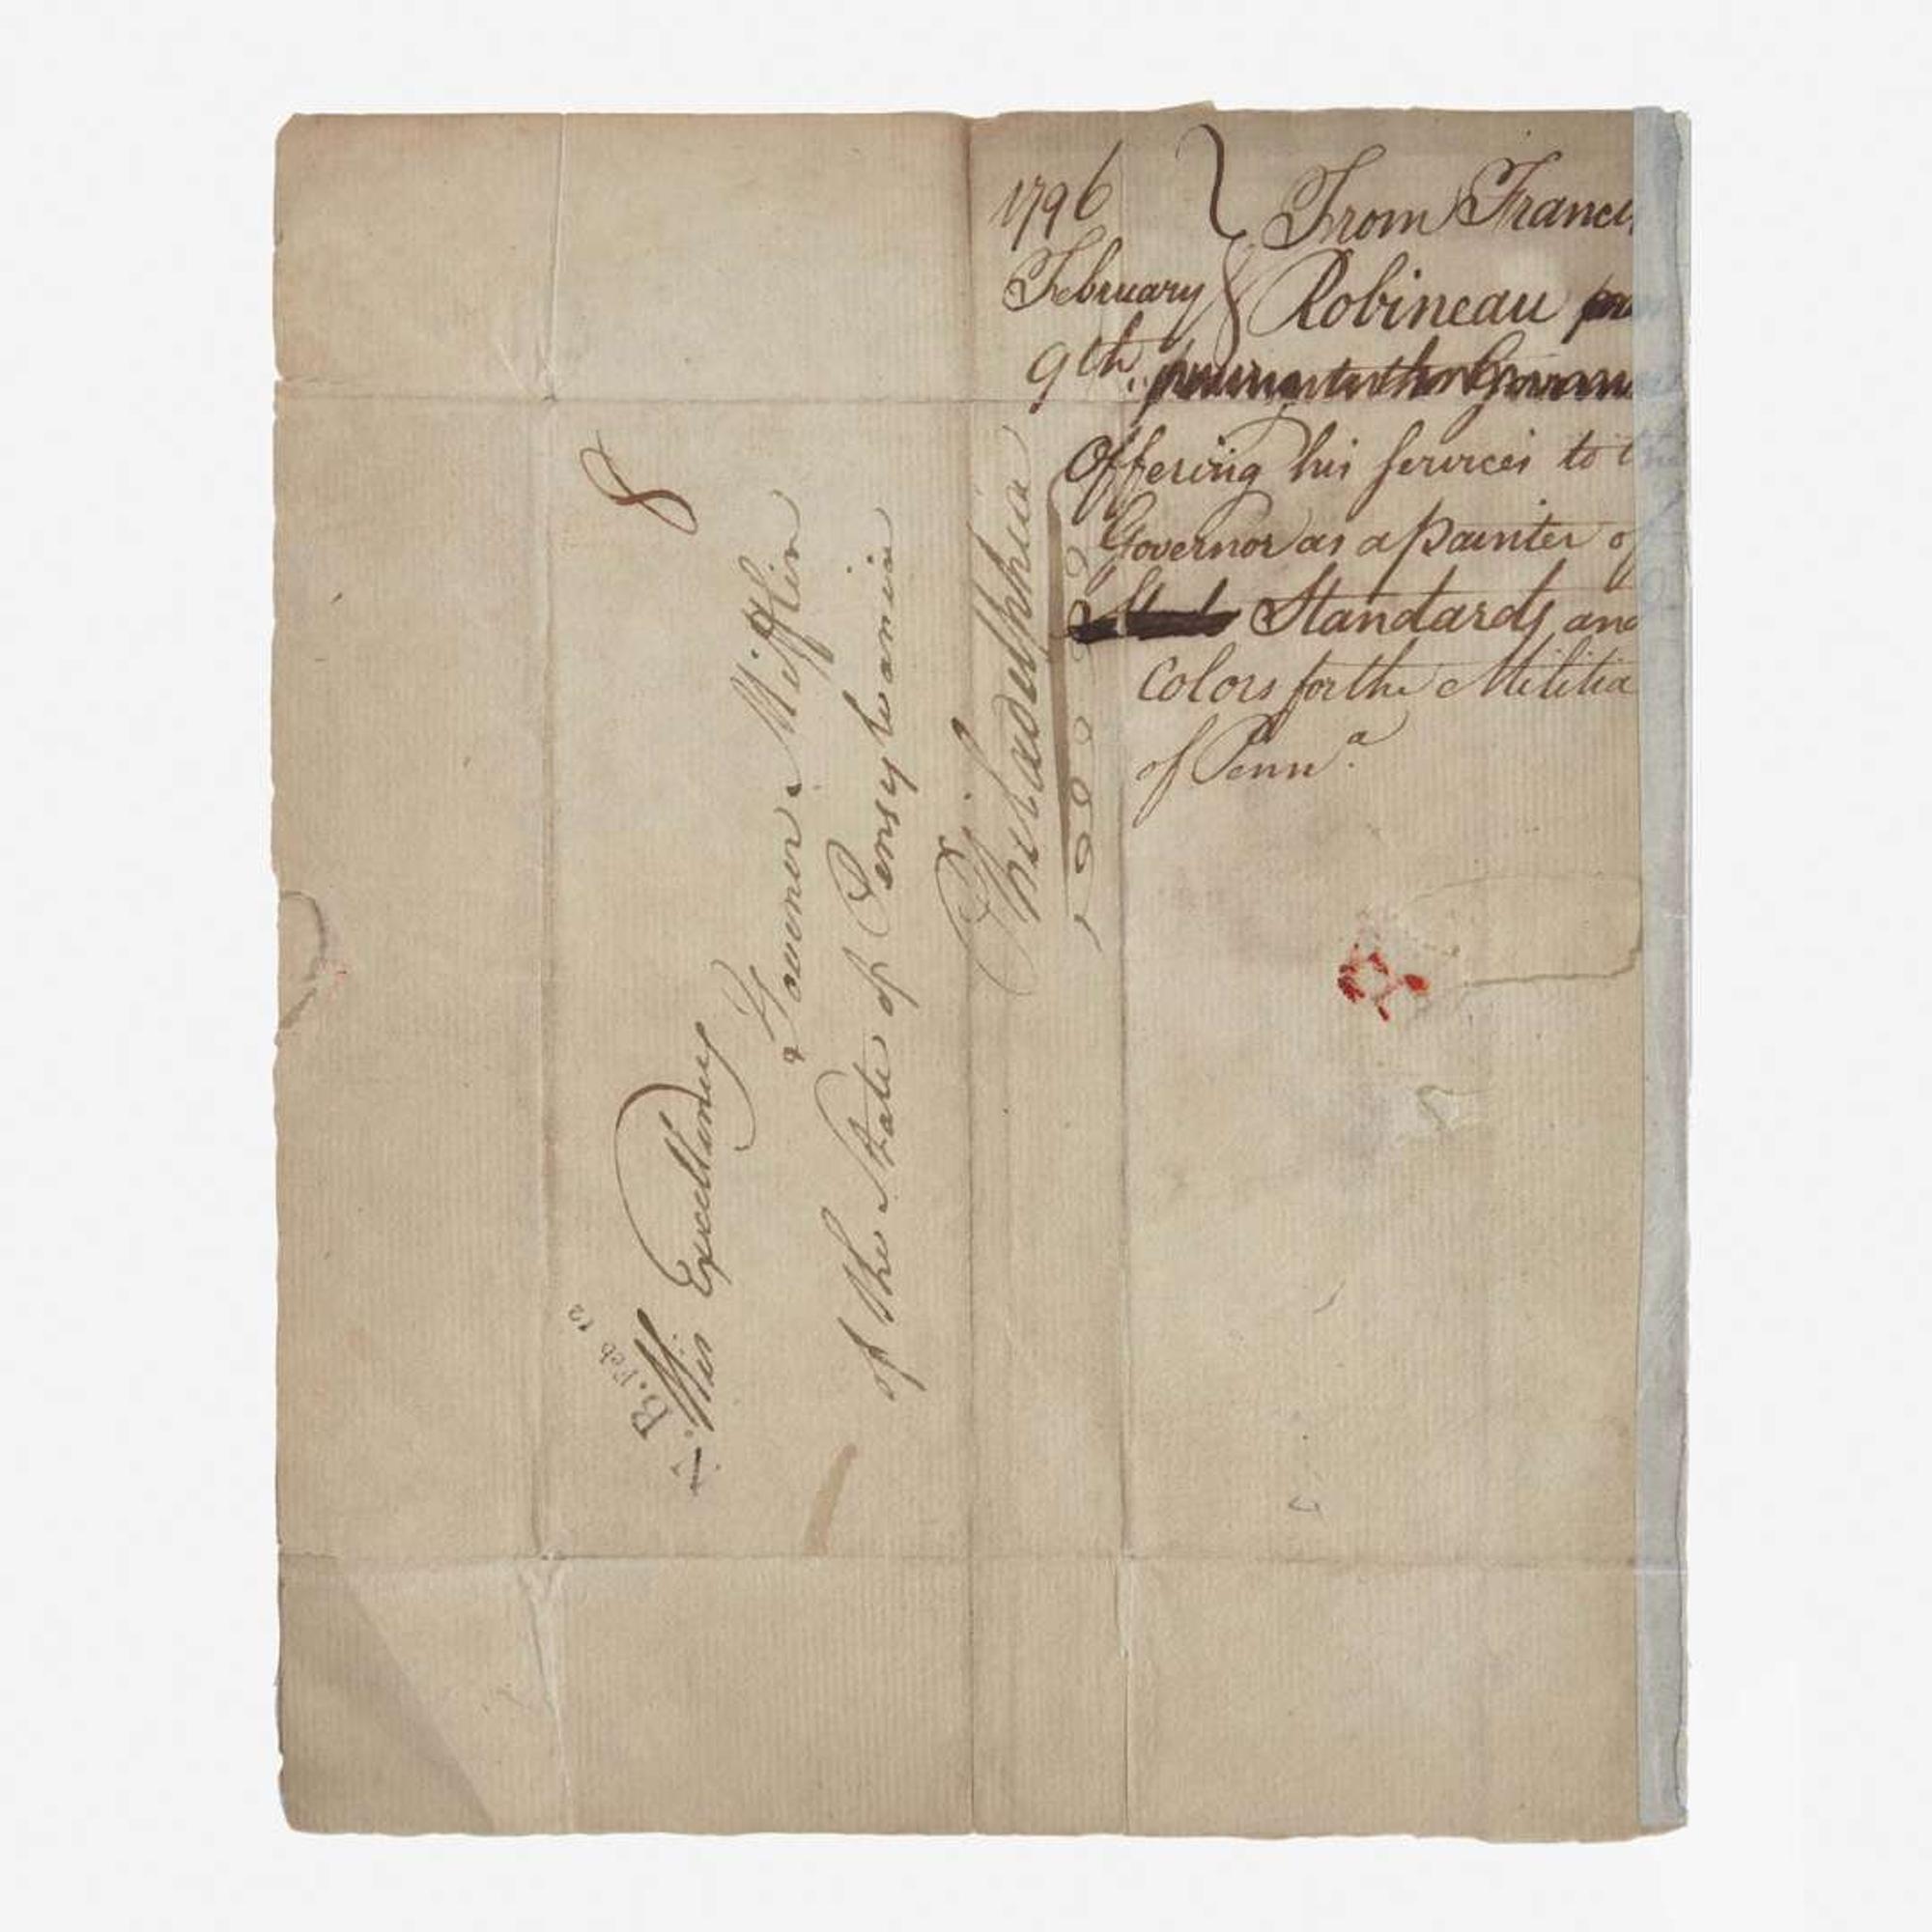 1796
February
9th
From Franci
Robineau
Offering his services to the
Governor as a painter of
Standards and
colors for the Militia
of Penn.a
8
B. Feb 12
His Excellency
Governer Mifflin
of the State of Pensylvania
Philadelphia